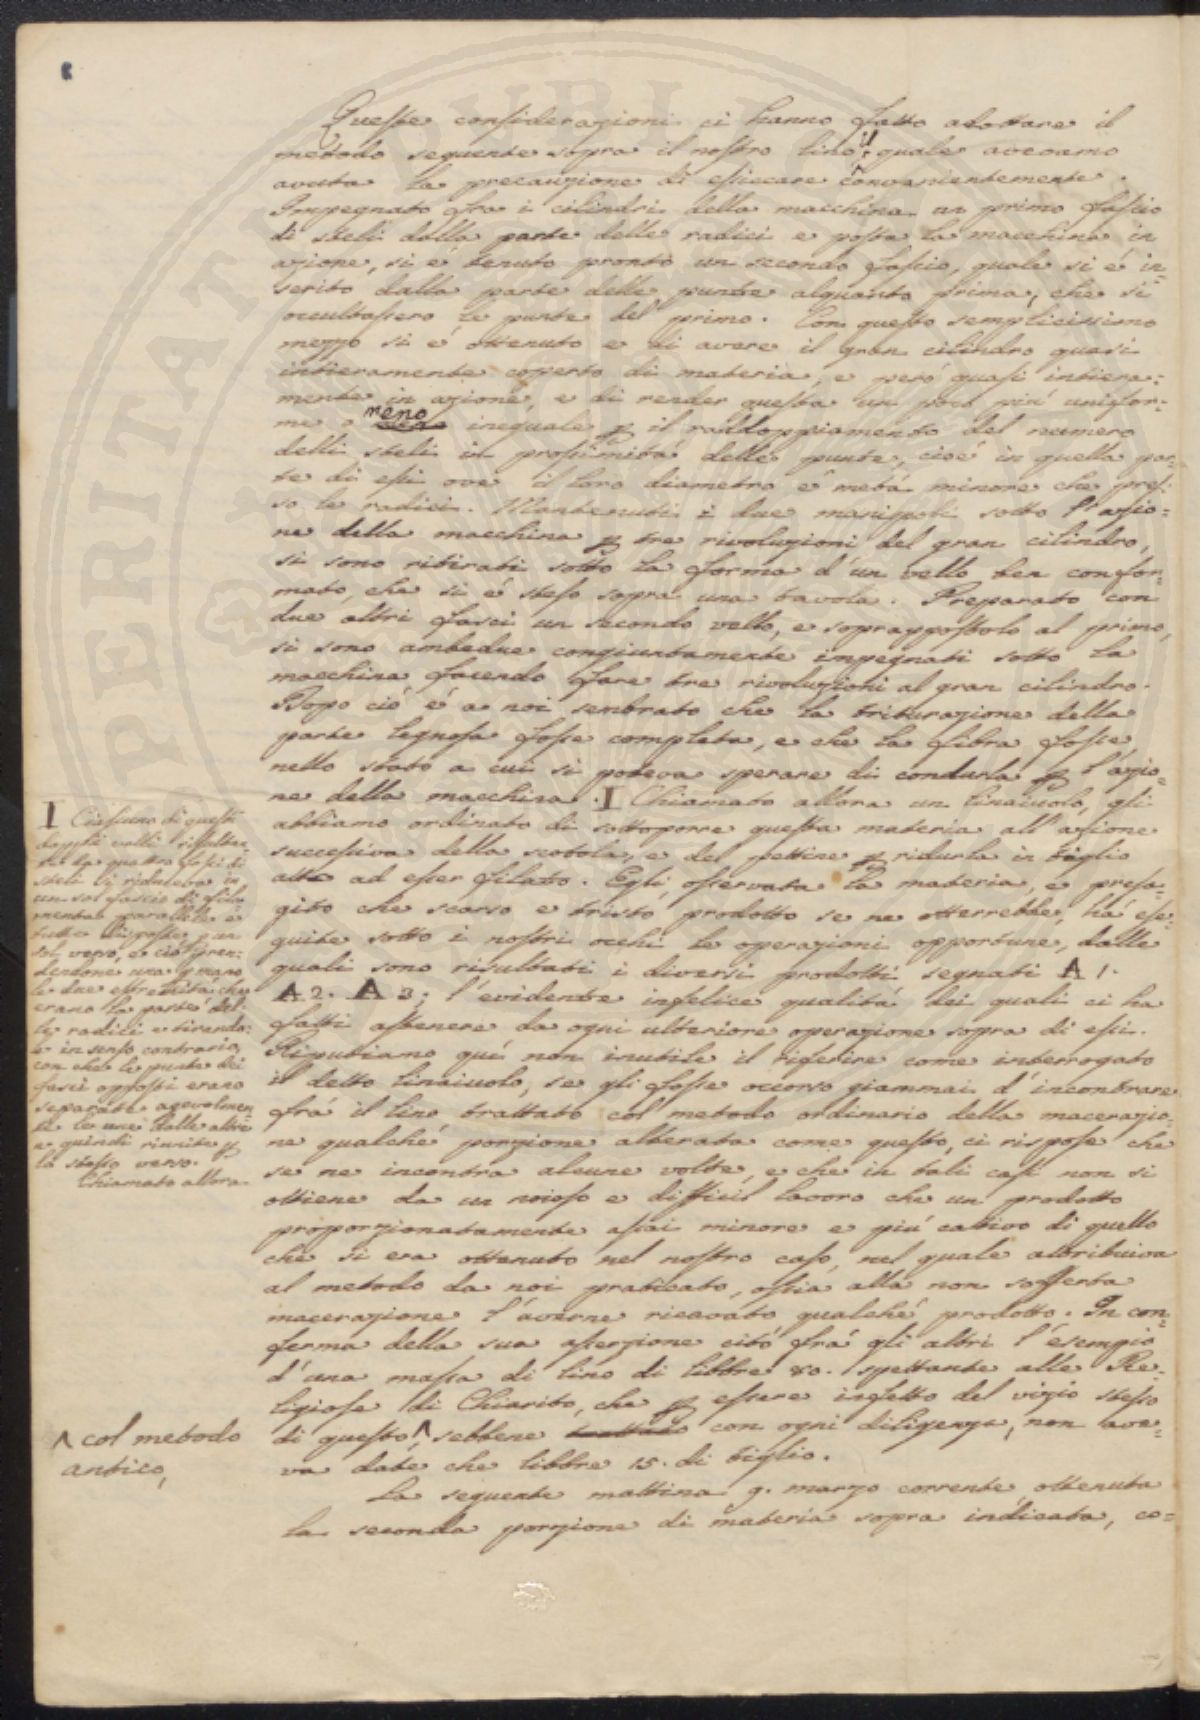 Queste considerazioni ci hanno fatto adottare il
metodo seguente sopra il nostro lino, il quale avevamo
avuta la precauzione di essiccare convenientemente.
Impegnato fra i cilindri della macchina un primo fascio
di steli dalla parte delle radici e posta la macchina in
azione, si è tenuto pronto un secondo fascio, quale si è in=
serito dalla parte delle punte alquanto prima, che si
occultassero le punte del primo. Con questo semplicissimo
mezzo si è ottenuto e di avere il gran cilindro quasi
intieramente coperto di materia, e però quasi intiera=
mente in azione, e di render questa un poco più unifor=
me o meno ineguale p il raddoppiamento del numero
delli steli in prossimità delle punte, cioè in quella par=
te di essi ove il loro diametro è metà minore che pres=
so le radici. Mantenuti i due manipoli sotto l'azio=
ne della macchina p tre rivoluzioni del gran cilindro,
si sono ritirati sotto la forma d'un vello ben confor=
mato, che si è steso sopra una tavola. Preparato con
due altri fasci un secondo vello, e soprappostolo al primo,
si sono ambedue congiuntamente impegnati sotto la
macchina facendo fare tre rivoluzioni al gran cilindro.
Dopo ciò è a noi sembrato che la triturazione della
parte legnosa fosse completa, e che la fibra fosse
nello stato a cui si poteva sperare di condurla p l'azio=
ne della macchina. I Chiamato allora un linaiuolo, gli
abbiamo ordinato di sottoporre questa materia all'azione
successiva della scotola, e del pettine p ridurla in tiglio
atto ad esser filato. Egli osservata la materia, e presa=
gito che scarso e tristo prodotto se ne otterrebbe, há ese=
guite sotto i nostri occhi le operazioni opportune, dalle
quali sono risultati i diversi prodotti segnati A 1.
A 2. A 3; l'evidente infelice qualità dei quali ci ha
fatti astenere da ogni ulteriore operazione sopra di essi.
Riputiamo quì non inutile il riferire come interrogato
il detto linaiuolo, se gli fosse occorso giammai d'incontrare
frá il lino trattato col metodo ordinario della macerazio=
ne qualche porzione alterata come questo, ci rispose che
se ne incontra alcune volte, e che in tali casi non si
ottiene da un noioso e difficil lavoro che un prodotto
proporzionatamente assai minore e più cattivo di quello
che si era ottenuto nel nostro caso, nel quale attribuiva
al metodo da noi praticato, ossia alla non sofferta
macerazione l'averne ricavato qualche prodotto. In con=
ferma della sua asserzione citò frá gli altri l'esempio
d'una massa di lino di libbre 80. spettante alle Re=
ligiose di Chiarito, che p essere infetto del vizio stesso
di questo, ^ sebbene trattato con ogni diligenza, non ave=
va date che libbre 15. di tiglio.
La seguente mattina 9. marzo corrente ottenuta
la seconda porzione di materia sopra indicata, co=
I Ciascuno di questi
doppii velli risultan
ti da quattro fasci di
steli si riduceva in
un sol fascio di fila
menta parallele e
tutte disposte p un
sol verso, e ciò pren=
dendone una p mano
le due estremità che
erano la parte del=
le radici e tirando=
le in senso contrario,
con che le punte dei
fasci opposti erano
separate agevolmen
te le une dalle altre
e quindi riunite p
lo stesso verso.
Chiamato allora.
^ col metodo
antico,